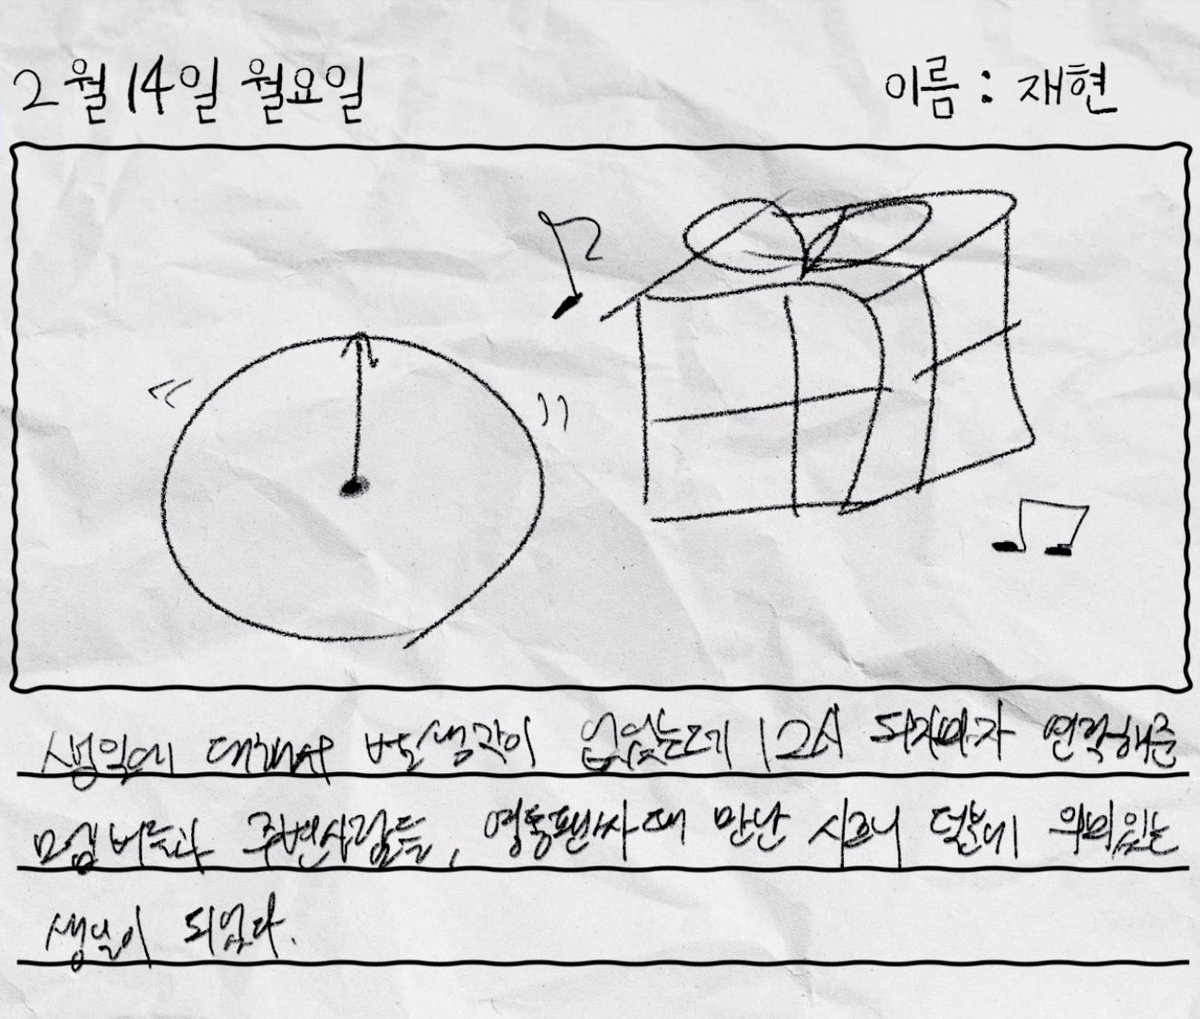 2월 14일 월요일
이름 : 재현
생일에 대해서 별생각이 없었는데 12시 되자마자 연락해준
멤버들과 주변사람들, 영통팬싸 때 만난 시즈니 덕분에 의미있는
생일이 되었다.